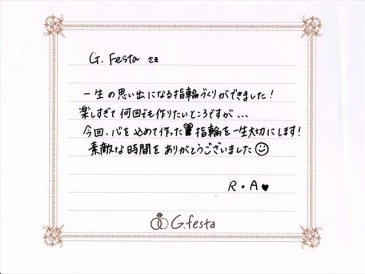 G. Festa さま
一生の思い出になる指輪づくりができました!
楽しすぎて何回でも作りたいところですが...
今回、心を込めて作った指輪を一生大切にします!
素敵な時間をありがとうございました
R・A
G.festa